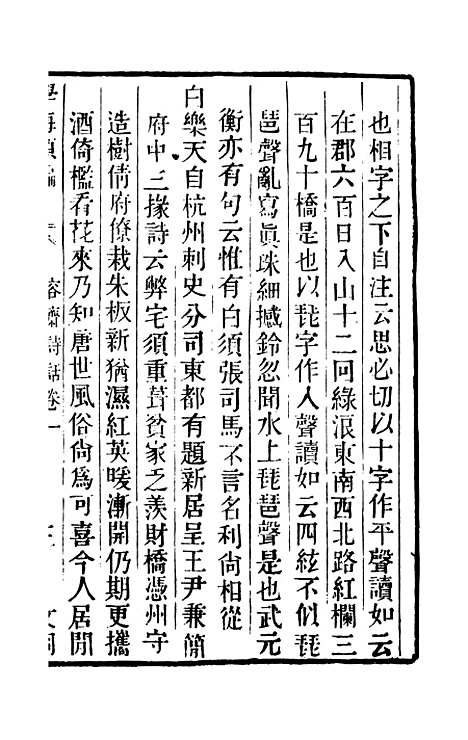 也相字之下自注云思必切以十字作平聲讀如云
在郡六百日入山十二回綠浪東南西北路紅欄三
百九十橋是也以琵字作入聲讀如云四絃不似琵
琶聲亂寫眞珠細撼鈴忽聞水上琵琶聲是也武元
衡亦有句云惟有白須張司馬不言名利尙相從
白樂天自杭州刺史分司東都有題新居呈王尹兼簡
府中三掾詩云弊宅須重葺貧家乏羨財橋憑州守
造樹倩府僚栽朱板新猶濕紅英暖漸開仍期更攜
酒倚檻看花來乃知唐世風俗尙爲可喜今人居閒
學海類編 容齋詩話卷一